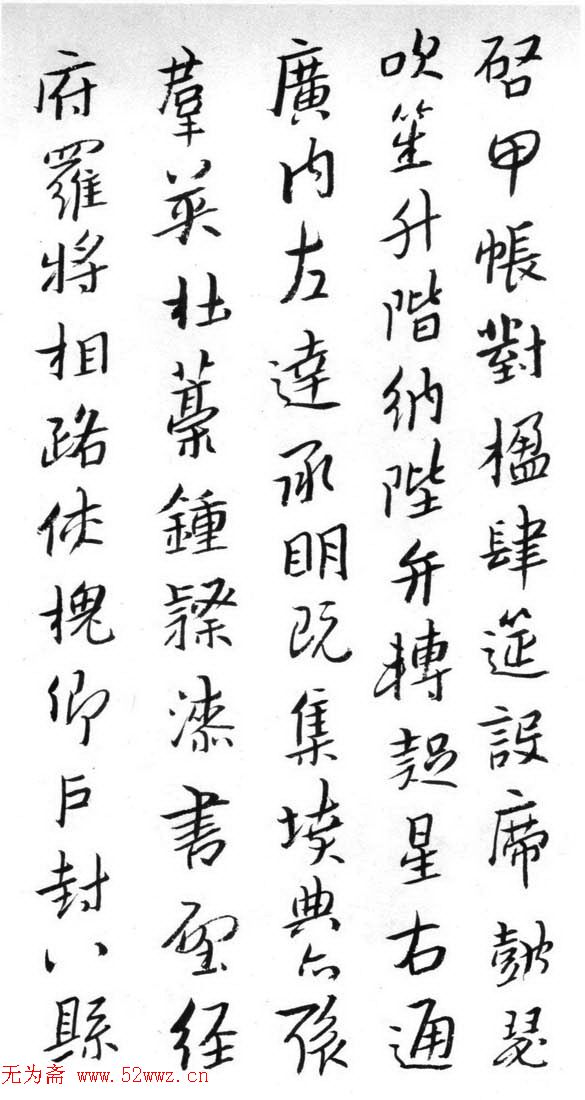 啓甲帳對楹肆筵設席鼓瑟
吹笙升階納陛弁轉疑星右通
廣内左達承明既集墳典亦聚
羣英杜藁鍾隸漆書壁経
府羅將相路俠槐卿戶封八縣
无为斋 www.52wwz.cn